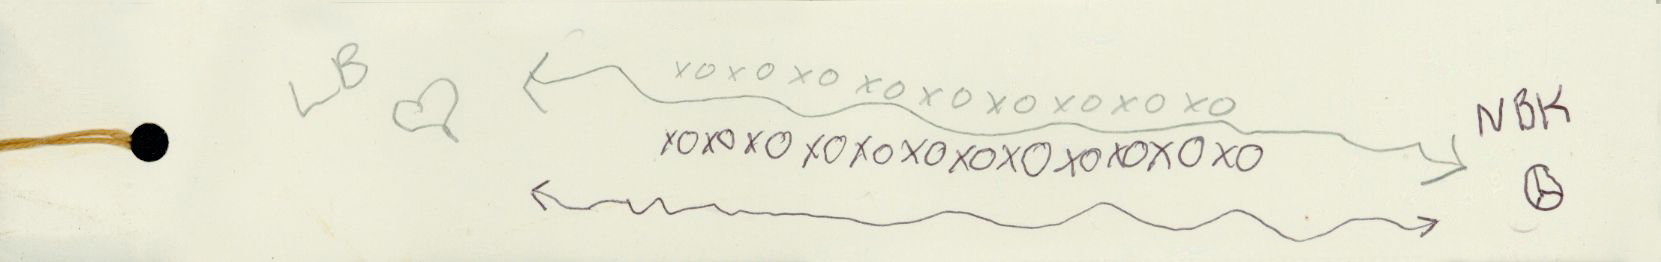 LB
xoxoxoxoxoxoxoxoxo
NBK
xoxoxoxoxoxoxoxoxoxoxoxo